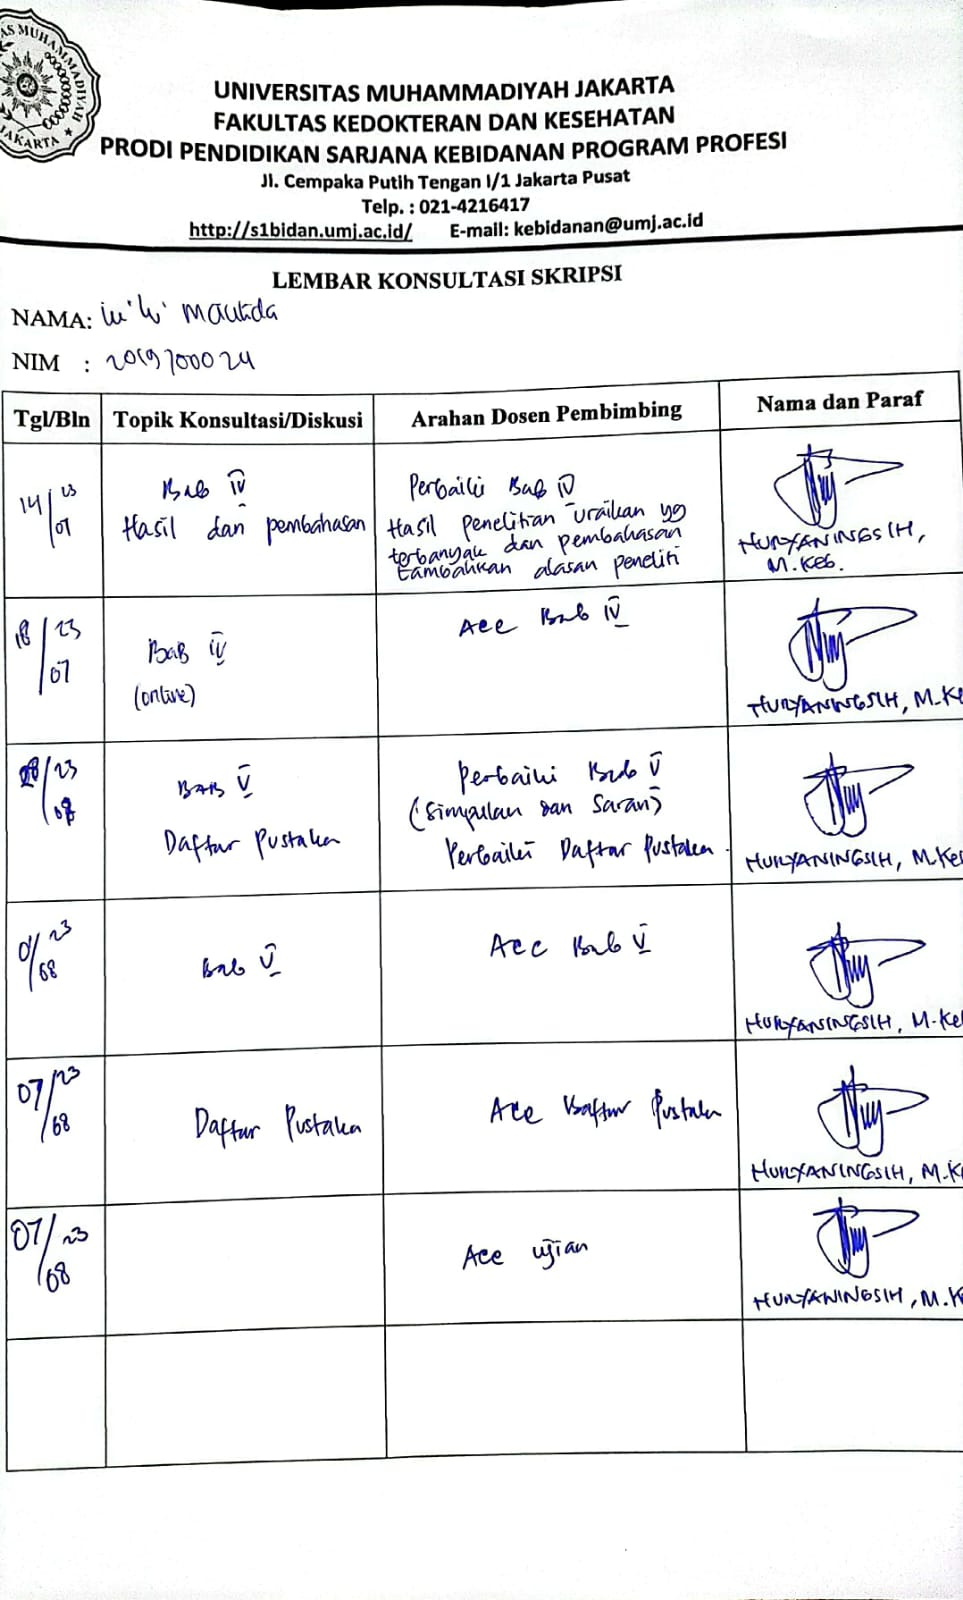 UNIVERSITAS MUHAMMADIYAH JAKARTA
FAKULTAS KEDOKTERAN DAN KESEHATAN
PRODI PENDIDIKAN SARJANA KEBIDANAN PROGRAM PROFESI
Jl. Cempaka Putih Tengan I/1 Jakarta Pusat
Telp. : 021-4216417
http://s1bidan.umj.ac.id/ E-mall: kebidanan@umj.ac.id
LEMBAR KONSULTASI SKRIPSI
NAMA: Maulida
NIM : 2019700024
Tgl/Bln Topik Konsultasi/Diskusi Arahan Dosen Pembimbing Nama dan Paraf
14/23 07
Bab IV
Hasil dan pembahasan
Perbaiki Bab IV
Hasil penelitian uraikan yg
terbanyak dan pembahasan
tambahkan alasan peneliti
HURYANINGSIH,
M.Keb.
18/23 07
Bab IV
(online)
Acc Bab IV
HURYANINGSIH, M.Ke
/23
BAB V
Daftar Pustaka
Perbaiki Bab V
(Simpulan dan Saran)
Perbaiki Daftar Pustaka
HURYANINGSIH, M.Ke
01/23 08
Bab V
Acc Bab V
HURYANINGSIH, M.Ke
07/23 08
Daftar Pustaka
Acc Daftar Pustaka
HURYANINGSIH, M.K
07/23 08
Acc ujian
HURYANINGSIH, M.K